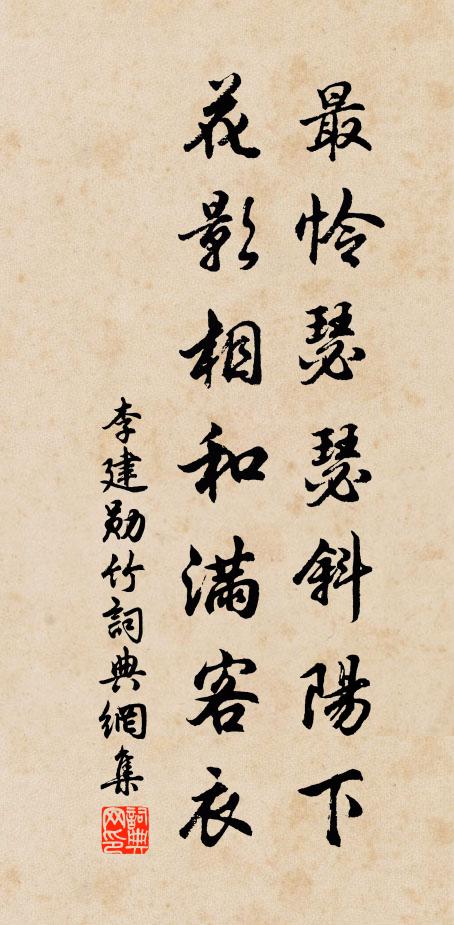 最怜瑟瑟斜陽下
花影相和满客衣
李建勋竹詞典網集
詞典网印